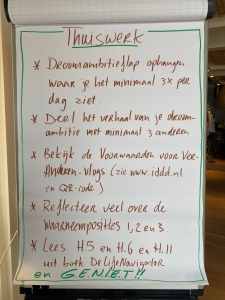 Thuiswerk
* Droomambitieflap ophangen
waar je het minimaal 3x per
dag ziet.
* Deel het verhaal van je droom-
ambitie met minimaal 3 anderen
* Bekijk de Voorwaarden voor Ver-
Anderen. vlogs (zie www.iddd.nl
en QR-code)
* Reflecteer veel over de
waarneemposities 1, 2 en 3.
* Lees H5 en H.6 en H.11
uit boek De LifeNavigator
en GENIET!!